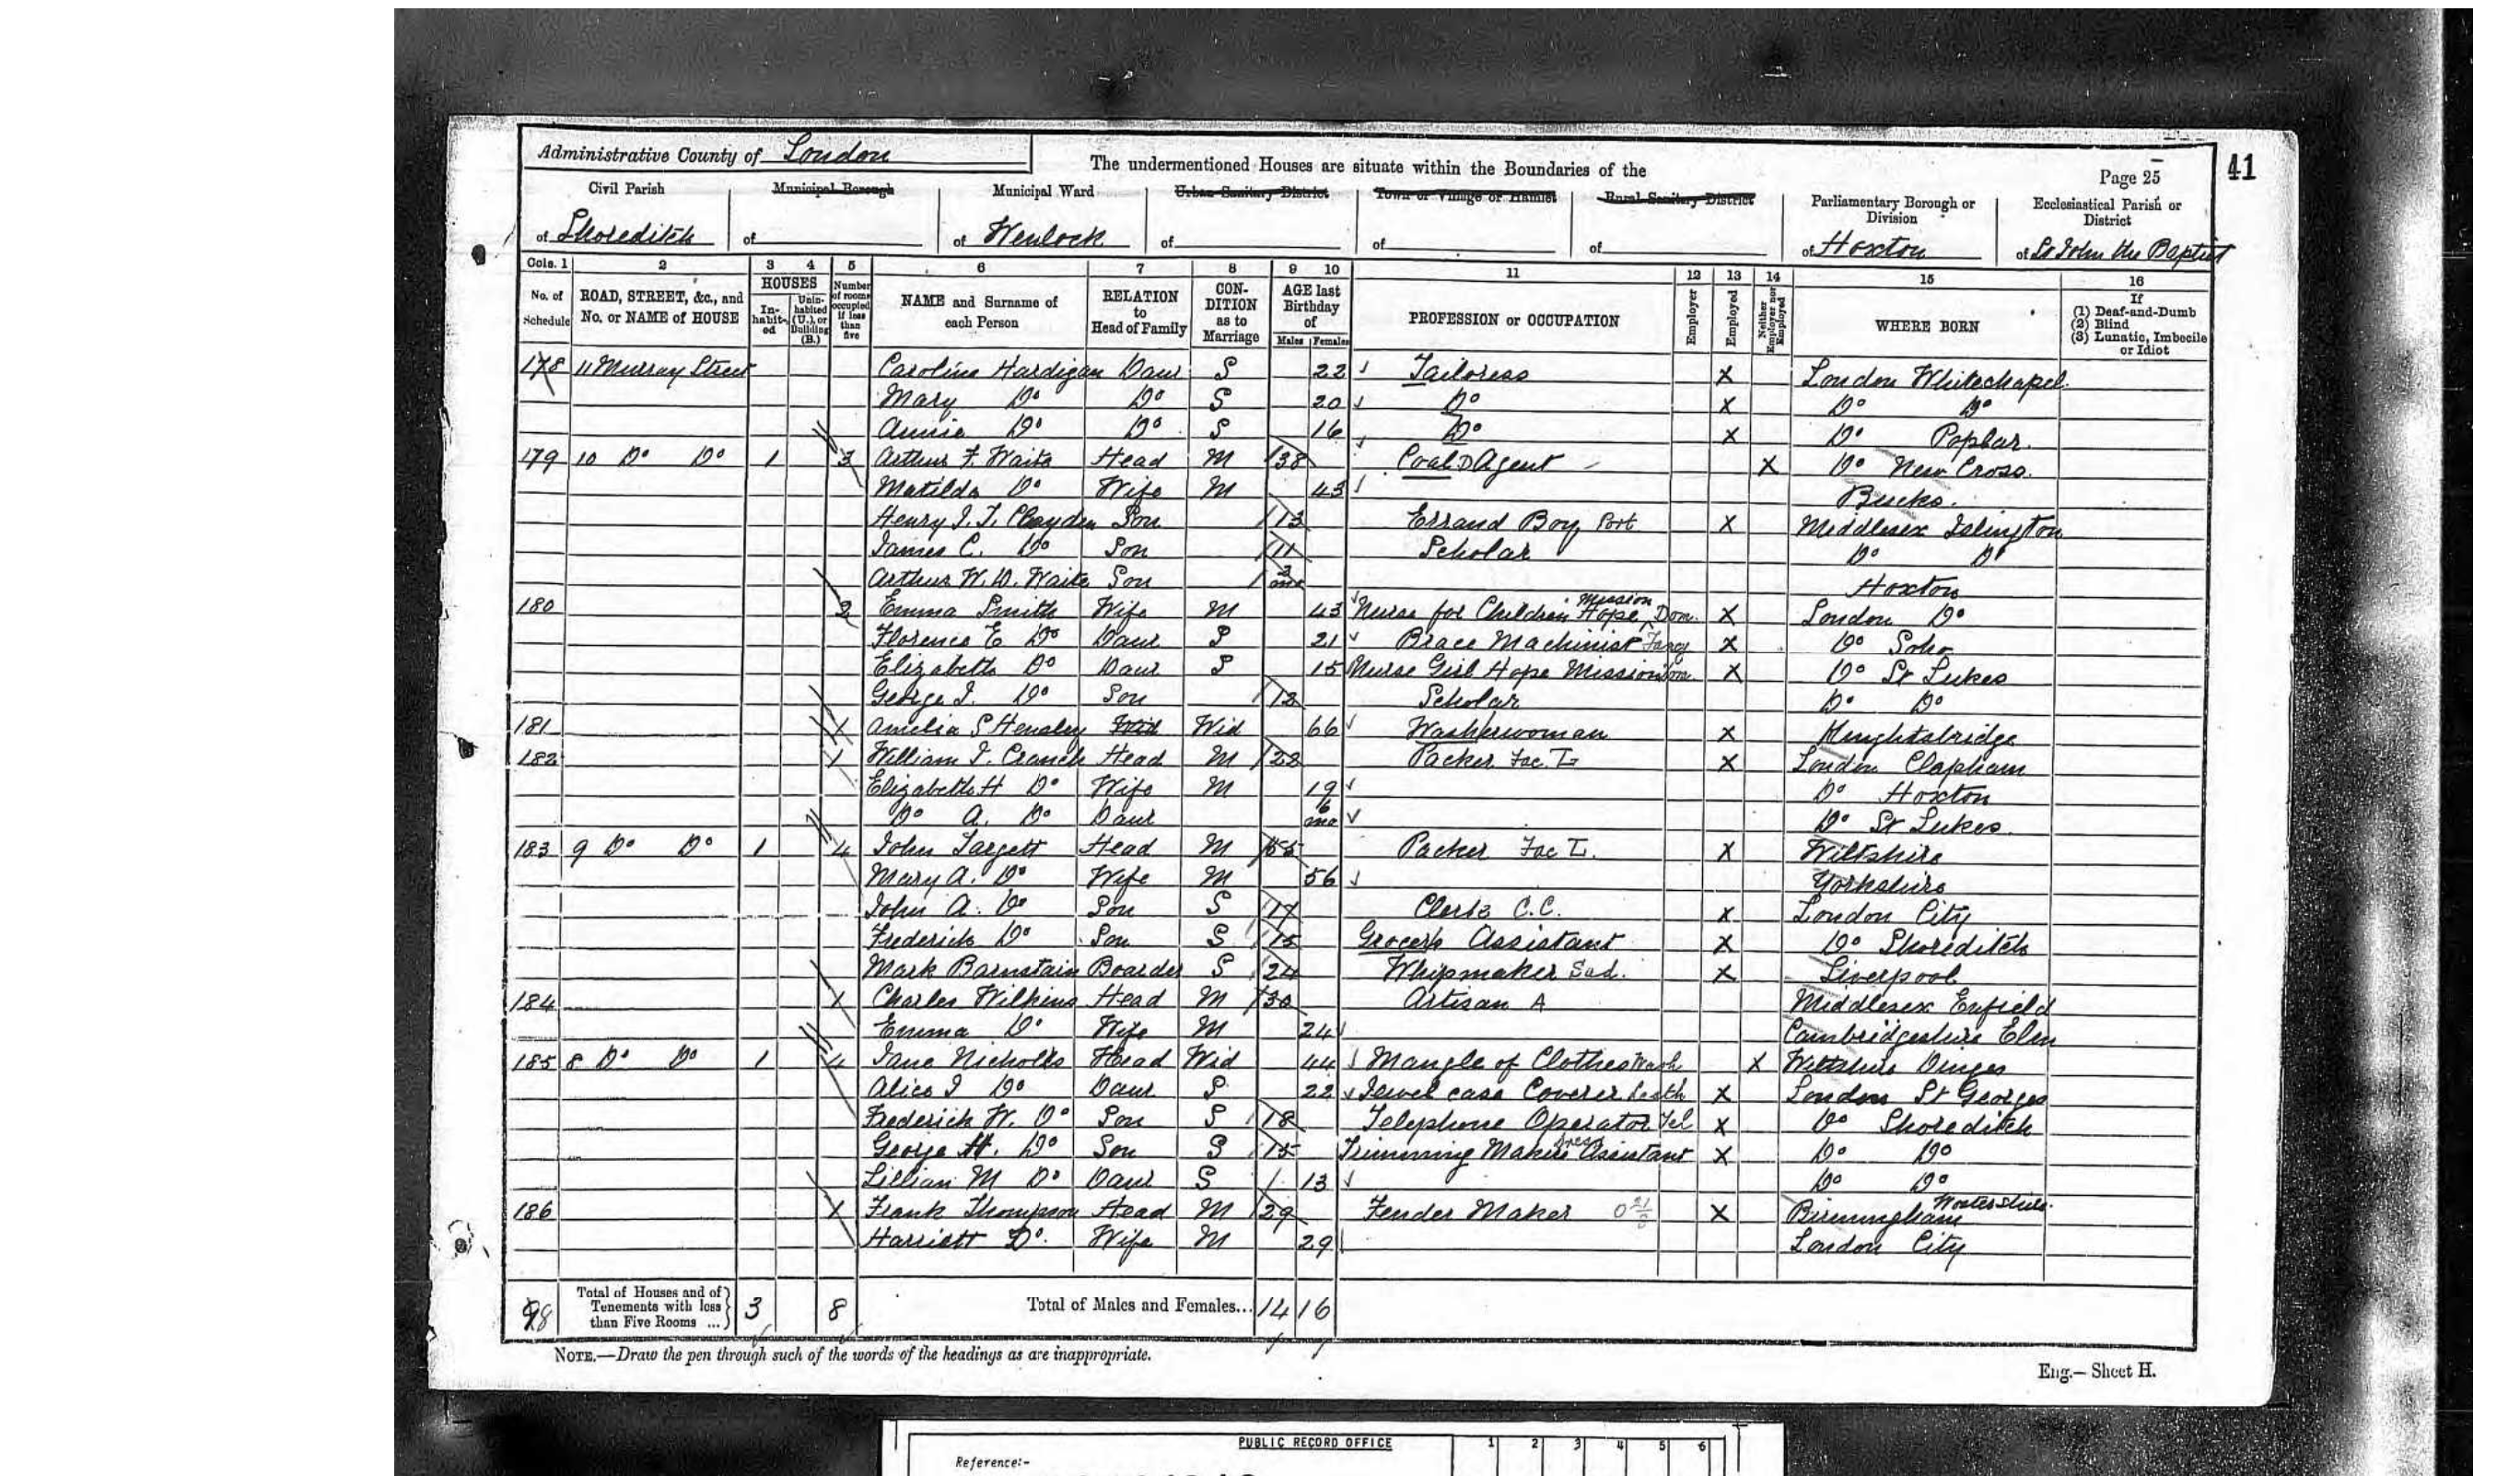 Administrative County of London
The undermentioned Houses are situate within the Boundaries of the
Page 25
41
Civil Parish Municipal Borough Municipal Ward Urban Sanitary District Town or Village or Hamlet Rural Sanitary District Parliamentary Borough or Division Ecclesiastical Parish or District
of Shoreditch of of Wenlock of of of of Hoxton of St John the Baptist
Cols. 1 2 3 4 5 6 7 8 9 10 11 12 13 14 15 16
No. of Schedule ROAD, STREET, &c., and No. or NAME of HOUSE HOUSES In-habit-ed Unin-habited (U.), or Building (B.) Number of rooms occupied if less than five NAME and Surname of each Person RELATION to Head of Family CON-DITION as to Marriage AGE last Birthday of Males Females PROFESSION or OCCUPATION Employer Employed Neither Employer nor Employed WHERE BORN If (1) Deaf-and-Dumb (2) Blind (3) Lunatic, Imbecile or Idiot
178 11 Murray Street Caroline Hardigan Daur S 22 Tailoress X London Whitechapel
Mary Do Do S 20 Do X Do Do
Annie Do Do S 16 Do X Do Poplar
179 10 Do Do 1 3 Arthur F. Waite Head M 38 Coal Agent X Do New Cross
Matilda Do Wife M 43 Bucks.
Henry J. T. Clayden Son 13 Errand Boy Port X Middlesex Islington
James C. Do Son 11 Scholar Do Do
Arthur W. D. Waite Son 2 mo Hoxton
180 2 Emma Smith Wife M 43 Nurse for Children Hope Mission Dom. X London Do
Florence E Do Daur S 21 Brace Machinist X Do Soho
Elizabeth Do Daur S 15 Nurse Girl Hope Mission X Do St Lukes
George J. Do Son 12 Scholar Do Do
181 1 Amelia S Hensley Wid Wid 66 Washerwoman X Knightsbridge
182 1 William J. Cranch Head M 22 Packer Fac. L X London Clapham
Elizabeth H Do Wife M 19 Do Hoxton
Do A. Do Daur 6 mo Do St Lukes
183 9 Do Do 1 4 John Targett Head M 55 Packer Fac L. X Wiltshire
Mary A. Do Wife M 56 Yorkshire
John A. Do Son S 17 Clerk C.C. X London City
Frederick Do Son S 15 Grocer's Assistant X Do Shoreditch
Mark Barnstain Boarder S 24 Whipmaker Sad. X Liverpool
184 1 Charles Wilkins Head M 30 Artisan A Middlesex Enfield
Emma Do Wife M 24 Cambridgeshire Elm
185 8 Do Do 1 4 Jane Nicholls Head Wid 44 Mangle of Clothes Wash X Wiltshire
Alice J Do Daur S 22 Jewel case Coverer Leath X London St Georges
Frederick W. Do Son S 18 Telephone Operator Tel X Do Shoreditch
George H. Do Son S 15 Trimming Makers Assistant X Do Do
Lillian M Do Daur S 13 Do Do
186 1 Frank Thompson Head M 29 Fender Maker X Birmingham
Harriett Do. Wife M 29 London City
98 Total of Houses and of Tenements with less than Five Rooms ... 3 8 Total of Males and Females... 14 16
NOTE.—Draw the pen through such of the words of the headings as are inappropriate.
Eng.— Sheet H.
PUBLIC RECORD OFFICE 1 2 3 4 5 6
Reference:-